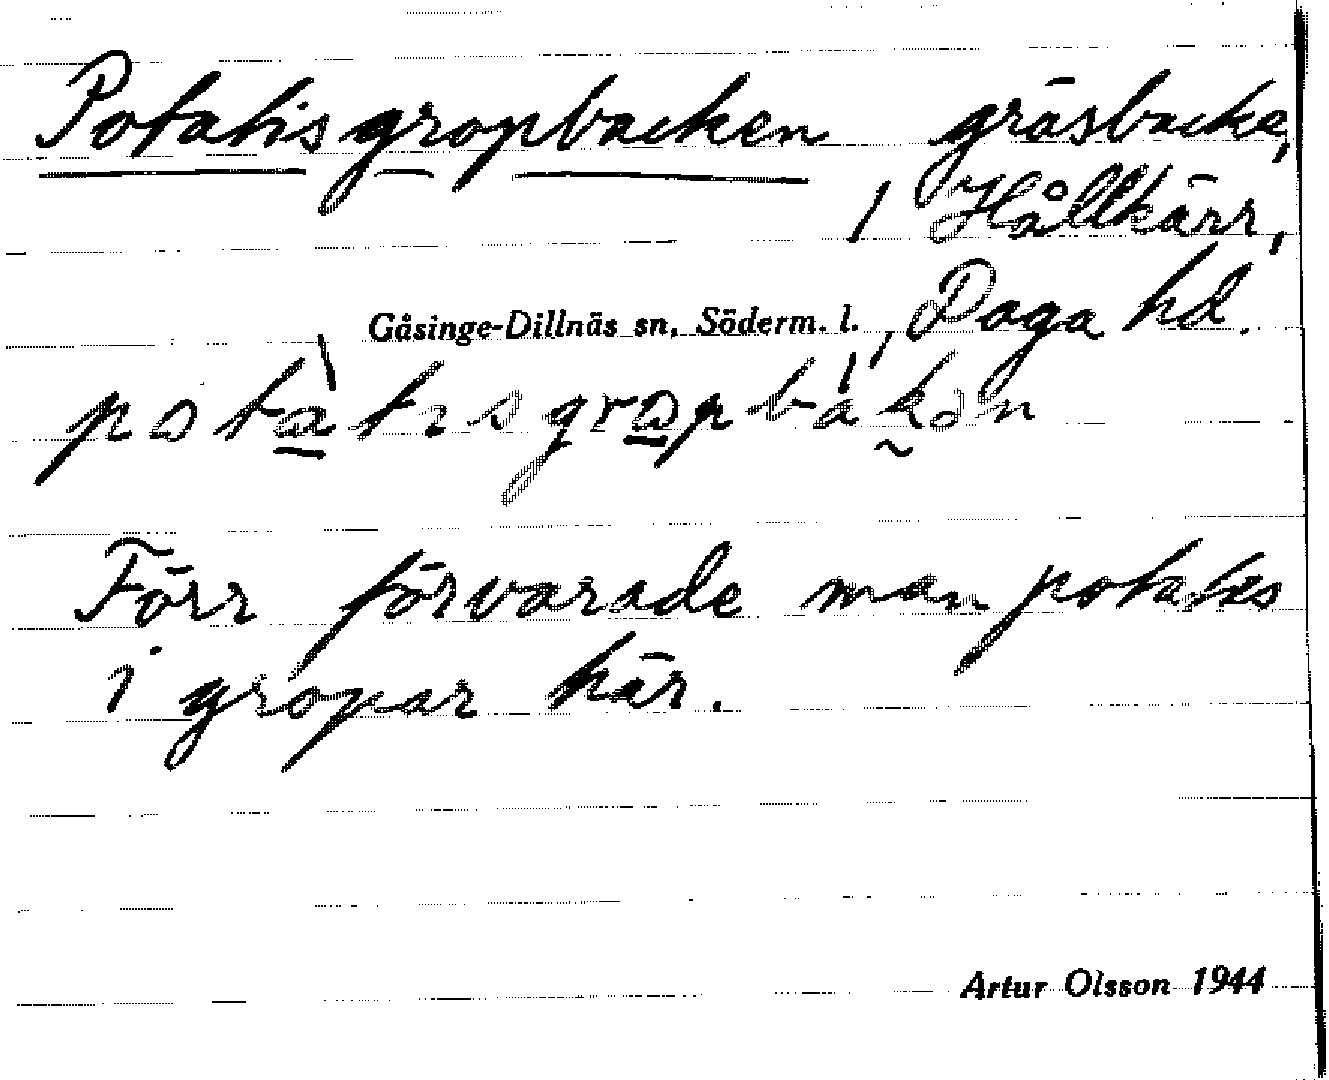 Potatisgropbacken gräsbacke,
i Hållkärr,
Gåsinge-Dillnäs sn, Söderm. l., Daga hd.
Förr förvarade man potatis
i gropar här.
Artur Olsson 1944